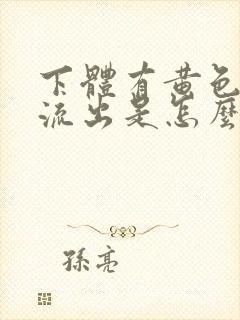 下體有黄色
流出是怎麼
孫亮